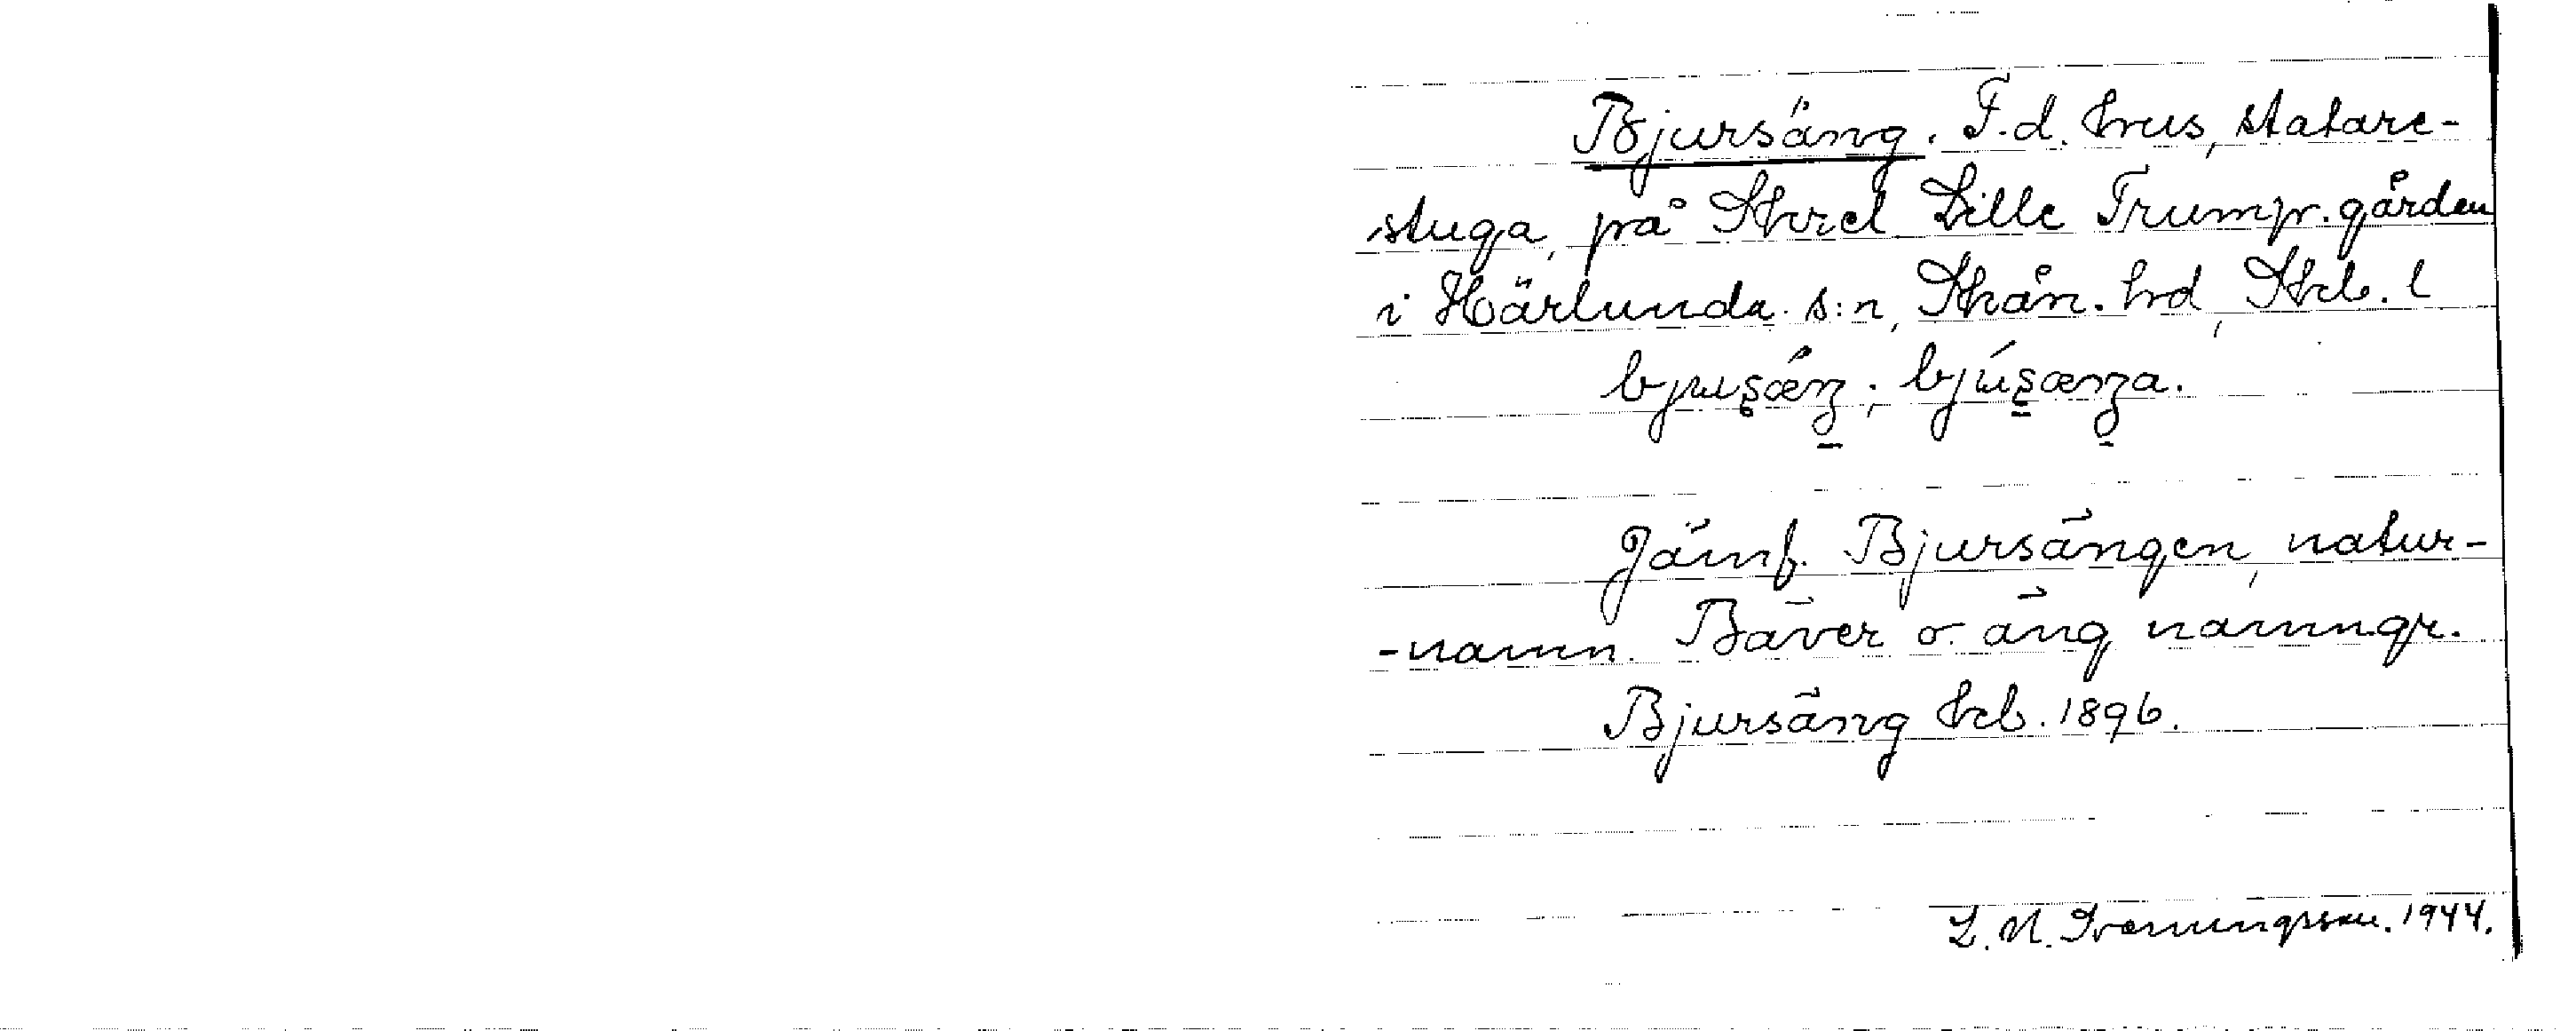 Bjursäng. F.d. hus, statare-
stuga, på Skrel Lille Trumpr.gården
i Härlunda s:n, Skån. hd, Skb. l
bjuʂǽŋ; bjúʂæŋa.
Jämf. Bjursängen, natur-
-namn. Bäver o. äng namngr.
Bjursäng hb. 1896.
1944.